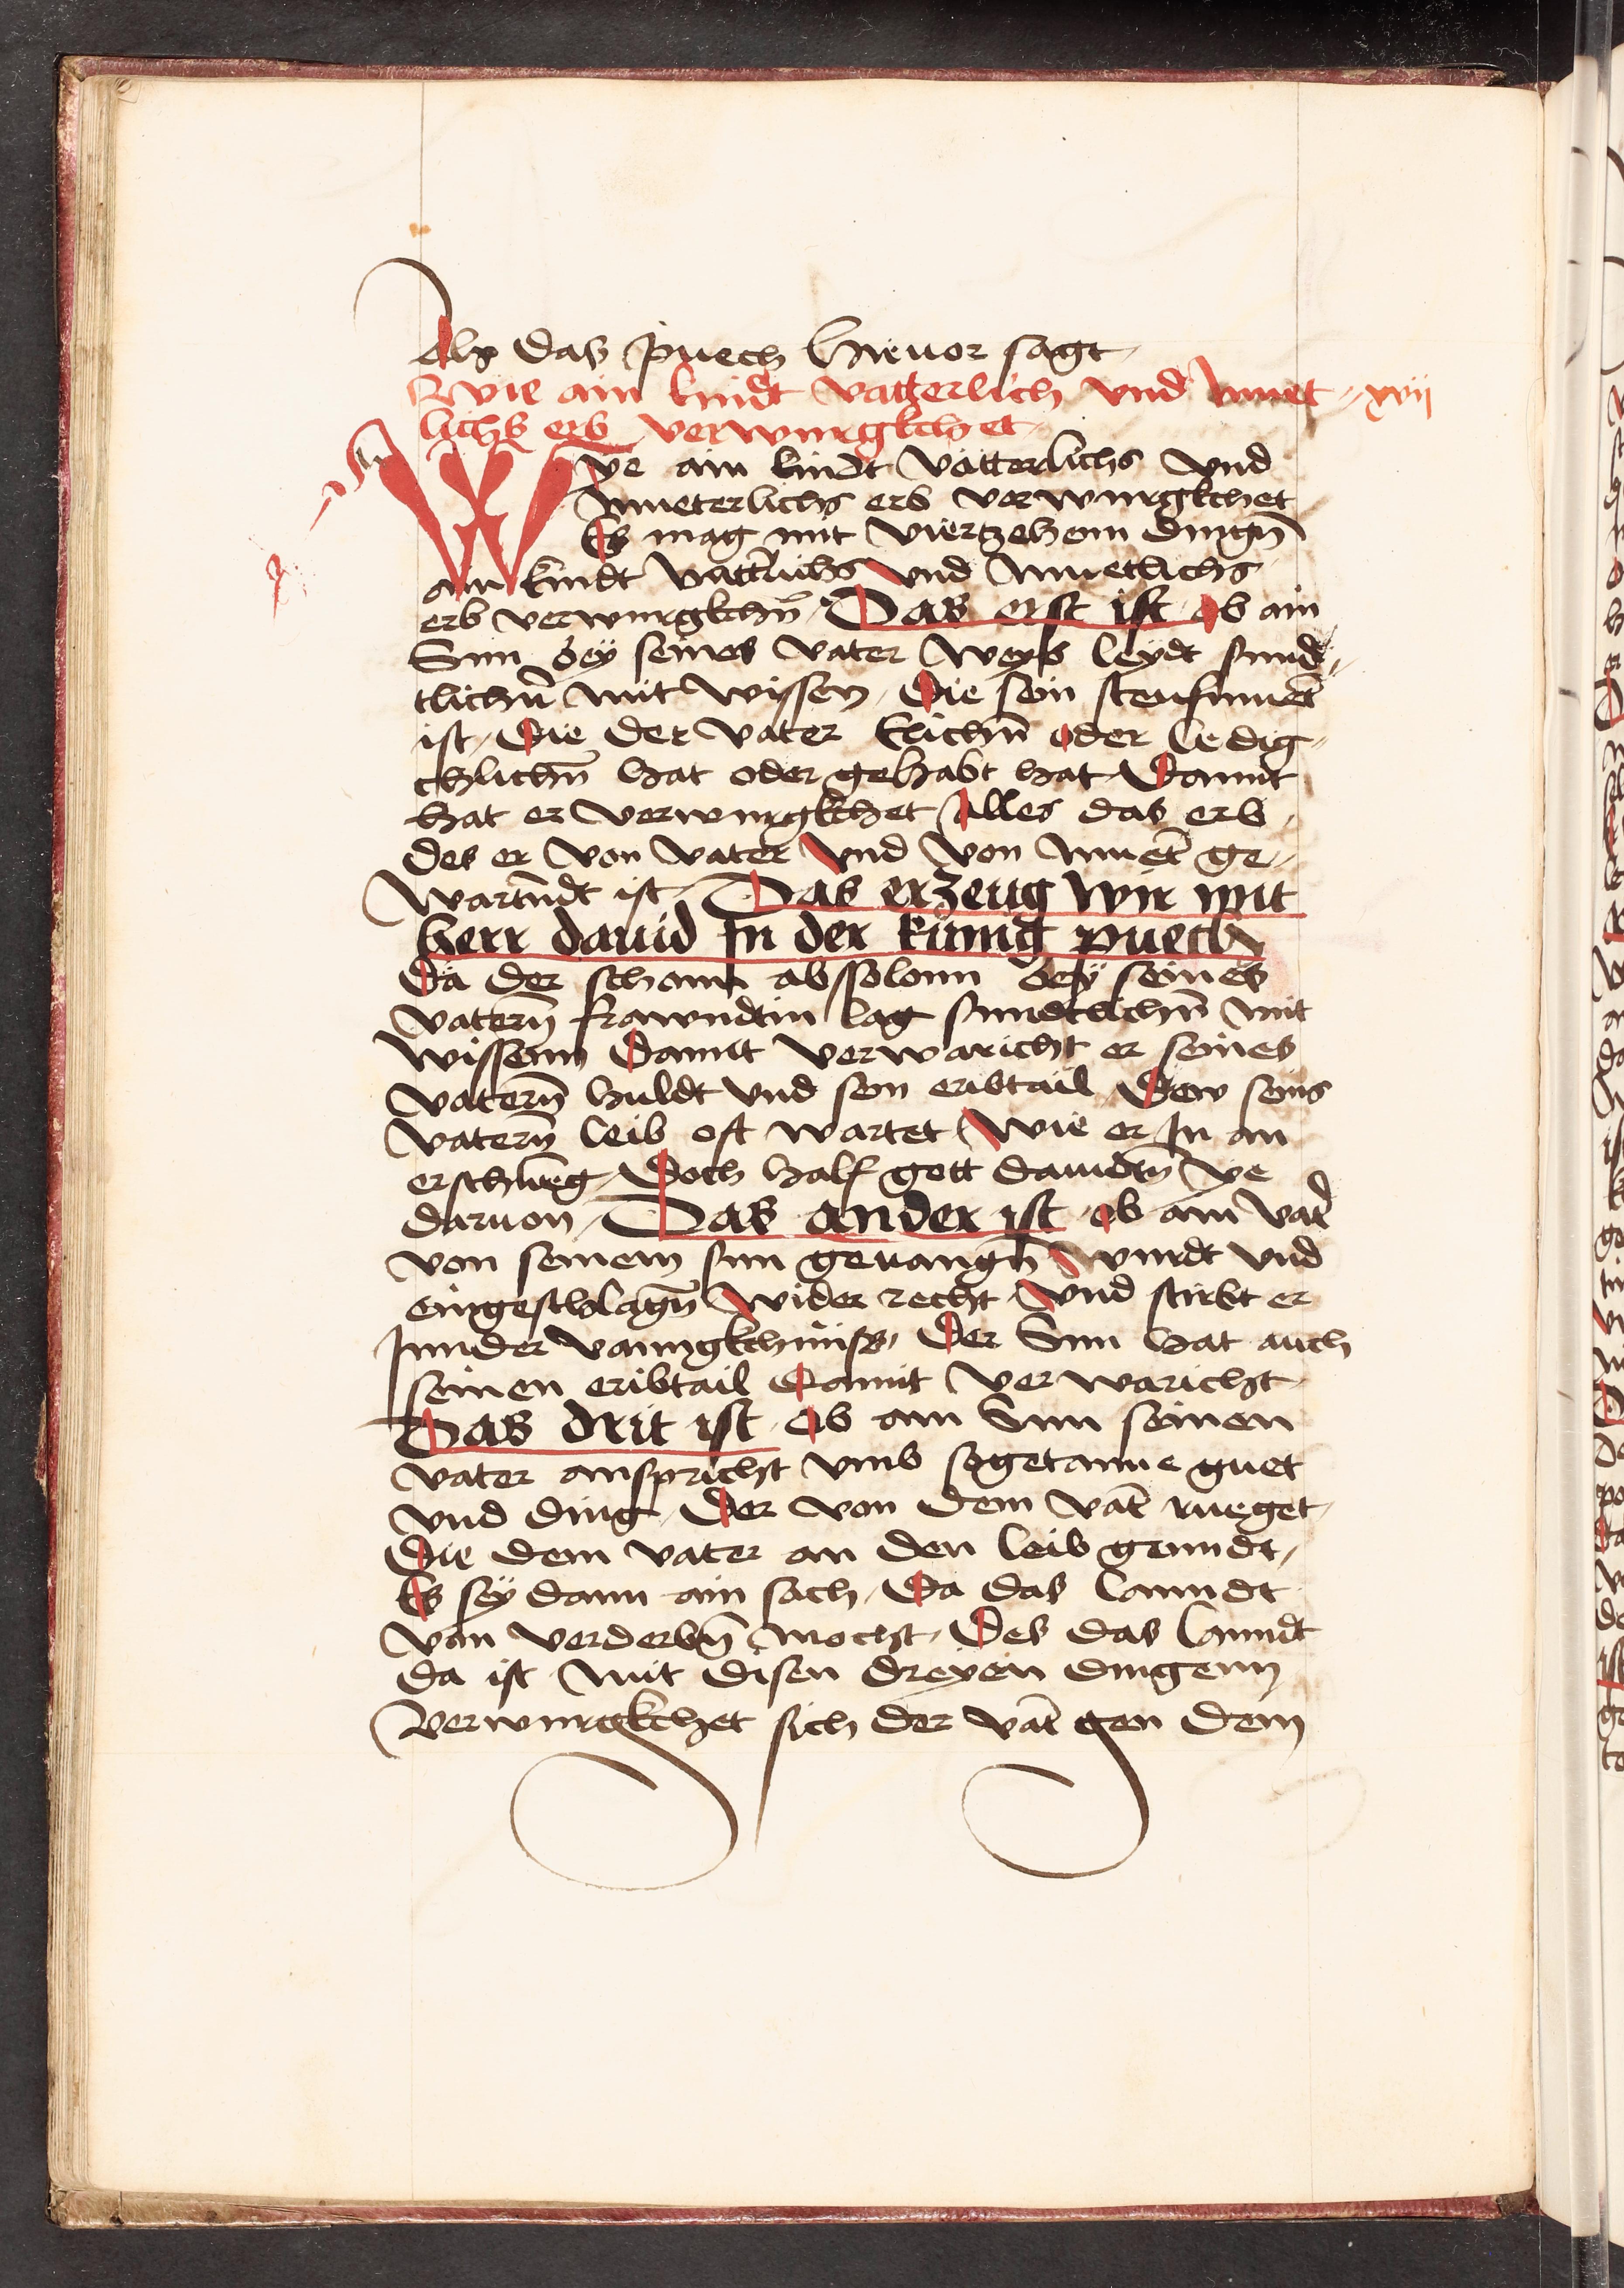 Als das puech hieuor sagt
Wie ain kindt vatterlich vnd muet xvii
lichs erb verwurgkchet
Wye ain kindt vätterlichs vnd
mueterlichs erb verwurgkchet
Es mag mit viertzehom dingn̄
ain kindt vatt̄lichs vnd muetlichs
erb verwurgkchn̄ Das erst ist ob ain
Sun bey seines vater weyb leydt sund
tlichn̄ mit wissen Die sein steufmuet̄
ist Die der vater Elichn̄ oder ledig
chlichn̄ hat oder gehabt hat Damit
hat er verwurgkchet Alles das erb
des er von vater vnd von muet̄ ge
wartn̄dt ist Das erzeug wir mit
herr dauid In der kunig puech
Da der schonn abssolonn bey seines
vatern̄ frawndtin lag sundtlichn̄ mit
wissenn Damit verwaricht er seines
vatern̄ huldt vnd sen eribtail Dew seins
vatern̄ leib oft wartet Wie er In an
erschlueg Doch half gott dauidn̄ ye
daruon Das ander ist ob ain vat̄
von seinem sun geuangn̄ wurdt vnd
eingeschlagn̄ wider recht vnd stirbt er
Inn der vanngkchnuss Der Sun hat auch
seinen eribtail Damit verwaricht
Das drit ist Ob ain Sun seinen
vater anspricht vmb sogetanne guet
vnd ding Der von dem vat̄ rueget
Die dem vater an den leib genndt
Es sey dann ain sach Da das lanndt
von verderbn̄ mocht Des das lanndt
da ist Mit disen dreyen dingenn
Verwurgkchet sich der vat̄ gen dem